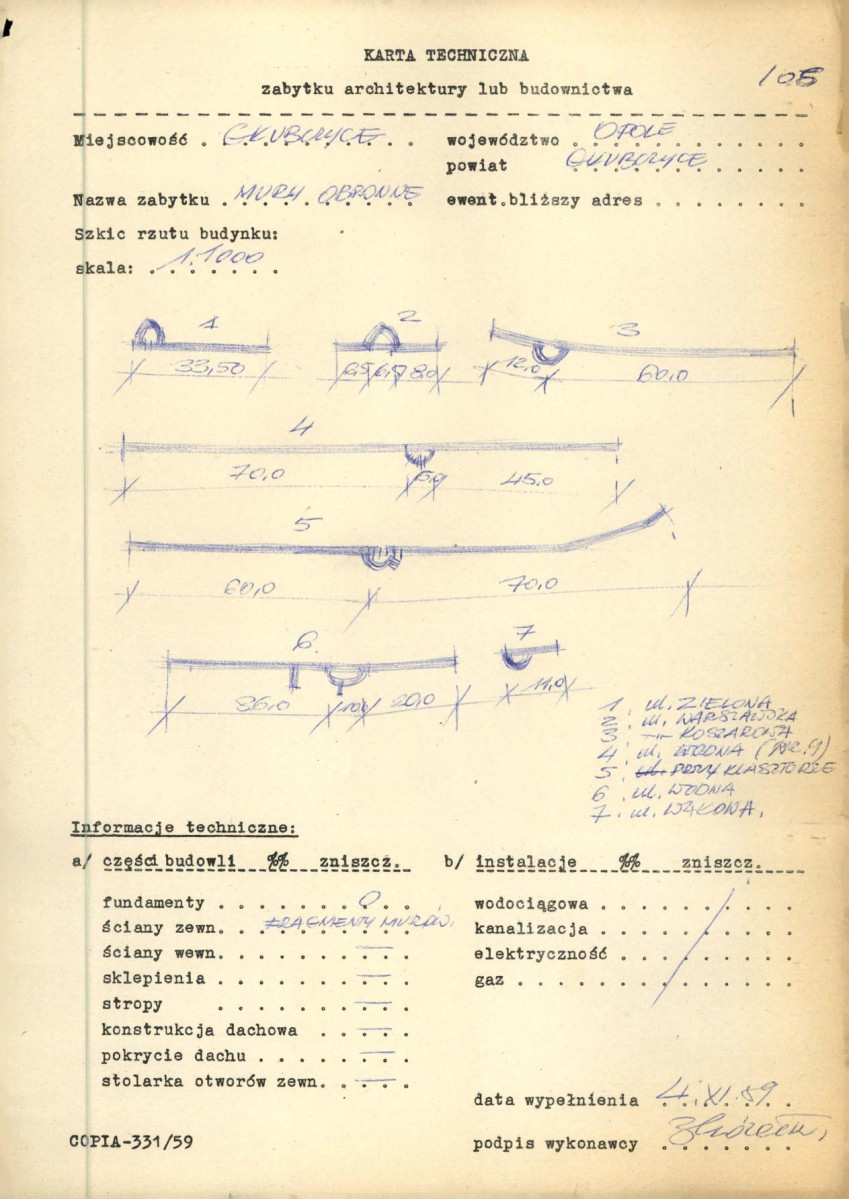 KARTA TECHNICZNA
zabytku architektury lub budownictwa
106
Miejscowość . GŁUBCZYCE . województwo . OPOLE . . . . . .
powiat GŁUBCZYCE . . . .
Nazwa zabytku . MURY OBRONNE ewent.bliższy adres . . . . . . . .
Szkic rzutu budynku:
skala: . 1:1000 . .
1 2 3
33,50 6,5 8,0 12,0 60,0
4
70,0 45,0
5
60,0 70,0
6 7
36,0 10,0 20,0 11,0
1. ul. ZIELONA
2. ul. WARSZAWSKA
3 -"- KOSZAROWA
4 ul. WODNA (NR. 9)
5. PRZY KLASZTORZE
6. ul. WODNA
7. ul.
Informacje techniczne:
a/ części budowli %% zniszcz. b/ instalacje %% zniszcz.
fundamenty . . . . . . 0 . . wodociągowa . . . . . . . . .
ściany zewn. . . FRAGMENTY MURÓW. kanalizacja . . . . . . . . .
ściany wewn. . . . . . — . elektryczność . . . . . . . .
sklepienia . . . . . . — . gaz . . . . . . . . . . . . .
stropy . . . . . . — .
konstrukcja dachowa . . — .
pokrycie dachu . . . . — .
stolarka otworów zewn. . . — .
data wypełnienia 4.XI.59
COPIA-331/59 podpis wykonawcy